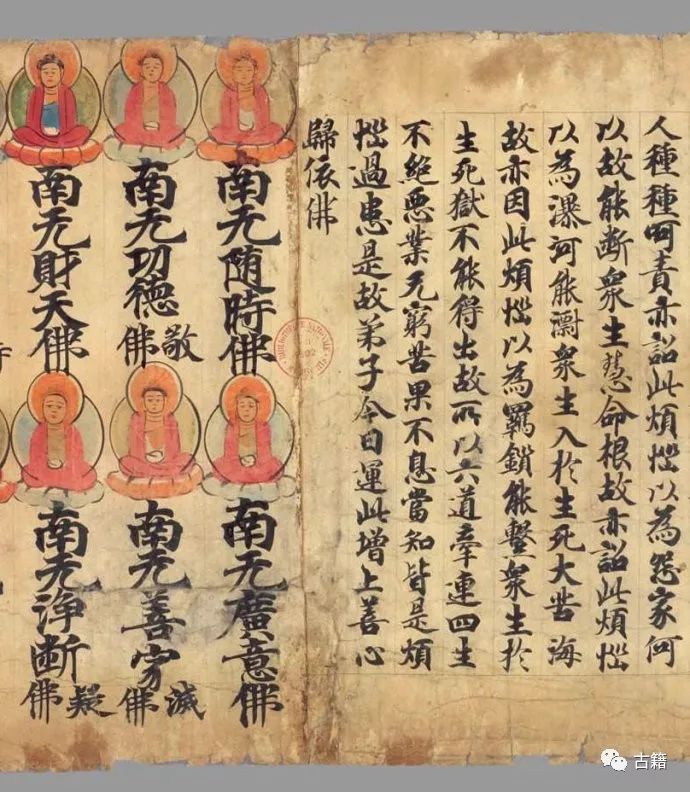 人種種呵責亦詺此煩惱以為怨家何
以故能断衆生慧命根故亦詺此煩惱
以為瀑河能衆生入於生死大苦海
故亦因此煩惱以為羈鎖能繫衆生於
生死獄不能得出故所以六道牽連四生
不絕惡業无窮苦果不息當知皆是煩
惱過患是故弟子今日運此增上善心
歸依佛
南无随時佛
南无廣意佛
南无功德敬佛
南无善寂滅佛
南无財天佛
南无淨断疑佛
古籍